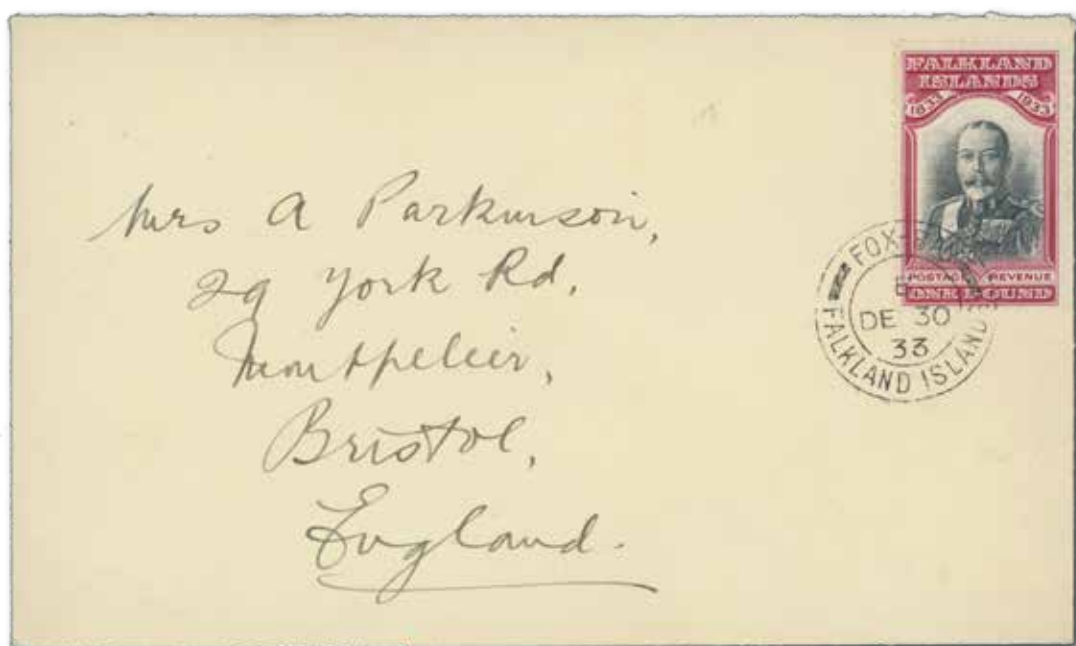 FALKLAND
ISLANDS
1833 1933
POSTAGE REVENUE
ONE POUND
FOX-
E
DE 30
33
FALKLAND ISLANDS
Mrs A Parkinson,
29 York Rd,
Montpelier,
Bristol,
England.